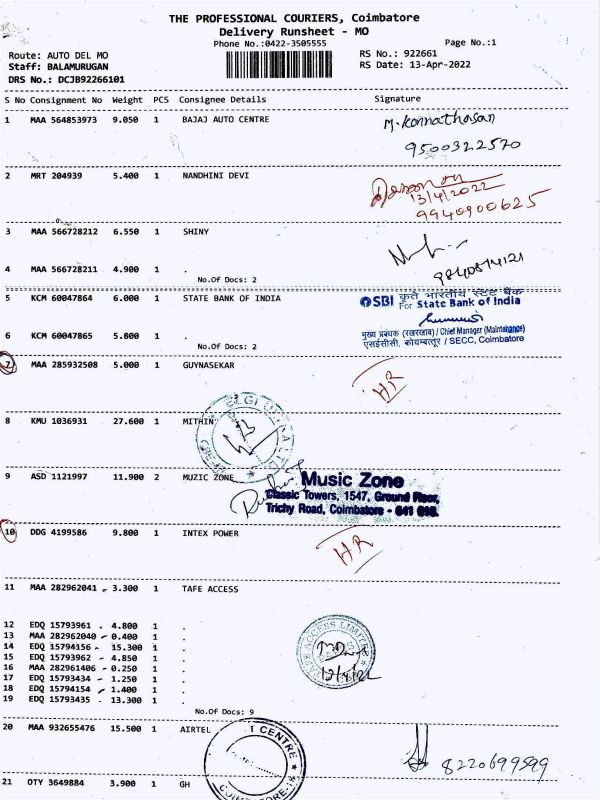 THE PROFESSIONAL COURIERS, Coimbatore
Delivery Runsheet - MO
Phone No.:0422-3505555
Page No.:1
Route: AUTO DEL MO
RS No.: 922661
Staff: BALAMURUGAN
RS Date: 13-Apr-2022
DRS No.: DCJB92266101
S No Consignment No Weight PCS Consignee Details Signature
1 MAA 564853973 9.050 1 BAJAJ AUTO CENTRE
9500322570
2 MRT 204939 5.400 1 NANDHINI DEVI
13/4/2022
9940900625
3 MAA 566728212 6.550 1 SHINY
4 MAA 566728211 4.900 1 .
No.Of Docs: 2
5 KCM 60047864 6.000 1 STATE BANK OF INDIA
SBI कृते भारतीय स्टेट बैंक
For State Bank of India
6 KCM 60047865 5.800 1 .
मुख्य प्रबंधक (रखरखाव) / Chief Manager (Maintenance)
एसईसीसी, कोयम्बत्तूर / SECC, Coimbatore
No.Of Docs: 2
7 MAA 285932508 5.000 1 GUYNASEKAR
HR
8 KMU 1036931 27.600 1 MITHIN
9 ASD 1121997 11.900 2 MUZIC ZONE
Music Zone
Classic Towers, 1547, Ground Floor,
Trichy Road, Coimbatore - 641 018.
10 DDG 4199586 9.800 1 INTEX POWER
HR
11 MAA 282962041 3.300 1 TAFE ACCESS
12 EDQ 15793961 4.800 1 .
13 MAA 282962040 0.400 1 .
14 EDQ 15794156 15.300 1 .
15 EDQ 15793962 4.850 1 .
16 MAA 282961406 0.250 1 .
17 EDQ 15793434 1.250 1 .
18 EDQ 15794154 1.400 1 .
19 EDQ 15793435 13.300 1 .
TAFE ACCESS LIMITED
No.Of Docs: 9
20 MAA 932655476 15.500 1 AIRTEL
T CENTRE
8220699599
21 OTY 3649884 3.900 1 GH